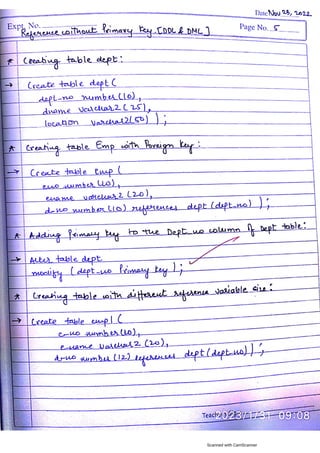 Date Nov 23, 2022
Expt. No.
Page No. 5
Reference without Primary key [DDL & DML]
* Creating table dept :
→ Create table dept (
dept_no number(10),
dname varchar2(25),
location varchar2(50) );
* Creating table Emp with Foreign key :
→ Create table Emp (
eno number(10),
ename varchar2(20),
d_no number(10) references dept (dept_no) );
* Adding Primary key to the Dept_no column of Dept table :
→ Alter table dept
modify (dept_no Primary key);
* Creating table with different reference variable size :
→ Create table emp1 (
e_no number(10),
e_name varchar2(20),
d_no number(12) references dept(dept_no));
2023/1/31 09:08
Scanned with CamScanner